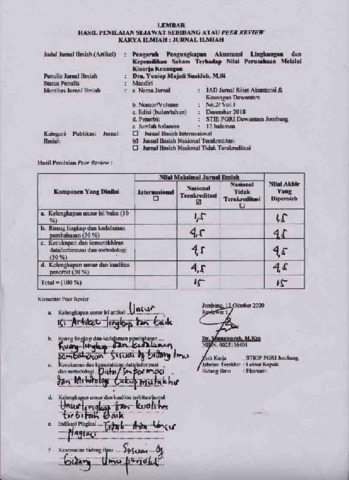 LEMBAR
HASIL PENILAIAN SEJAWAT SEBIDANG ATAU PEER REVIEW
KARYA ILMIAH : JURNAL ILMIAH
Judul Jurnal Ilmiah (Artikel) : Pengaruh Pengungkapan Akuntansi Lingkungan dan
Kepemilikan Saham Terhadap Nilai Perusahaan Melalui
Kinerja Keuangan
Penulis Jurnal Ilmiah : Dra. Yuniep Mujati Suaidah, M.Si
Status Penulis : Mandiri
Identitas Jurnal Ilmiah : a. Nama Jurnal : JAD Jurnal Riset Akuntansi &
Keuangan Dewantara
b. Nomor/Volume : No.2/ Vol.1
c. Edisi (bulan/tahun) : Desember 2018
d. Penerbit : STIE PGRI Dewantara Jombang
e. Jumlah halaman : 12 halaman
Kategori Publikasi Jurnal Ilmiah : ☐ Jurnal Ilmiah Internasional
☑ Jurnal Ilmiah Nasional Terakreditasi
☐ Jurnal Ilmiah Nasional Tidak Terakreditasi
Hasil Penilaian Peer Review :
Komponen Yang Dinilai
Nilai Maksimal Jurnal Ilmiah
Internasional ☐
Nasional Terakreditasi ☑
Nasional Tidak Terakreditasi ☐
Nilai Akhir Yang Diperoleh
a. Kelengkapan unsur isi buku (10 %) 1,5 1,5
b. Ruang lingkup dan kedalaman pembahasan (30 %) 4,5 4,5
c. Kecukupan dan kemutakhiran data/informasi dan metodologi (30 %) 4,5 4,5
d. Kelengkapan unsur dan kualitas penerbit (30 %) 4,5 4,5
Total = (100 %) 15 15
Komentar Peer Review
a. Kelengkapan unsur isi artikel Unsur
isi Artikel lengkap dan baik
b. Ruang lingkup dan kedalaman pembahasan
Ruang lingkup dan kedalaman
pembahasan sesuai dg bidang ilmu
c. Kecukupan dan kemutakhiran data/informasi
dan metodologi Data/Informasi
dan Metodologi cukup mutakhir
d. Kelengkapan unsur dan kualitas terbitan/jurnal
Unsur lengkap dan kualitas
terbitan baik
e. Indikasi Plagiasi Tidak Ada Unsur
Plagiasi
f. Kesesuaian bidang ilmu Sesuai dg
bidang ilmu penulis
Jombang, 12 Oktober 2020
Reviewer 1
Dr. Munawaroh, M.Kes
Unit Kerja : STKIP PGRI Jombang
Jabatan Terakhir : Lektor Kepala
Bidang Ilmu : Ekonomi